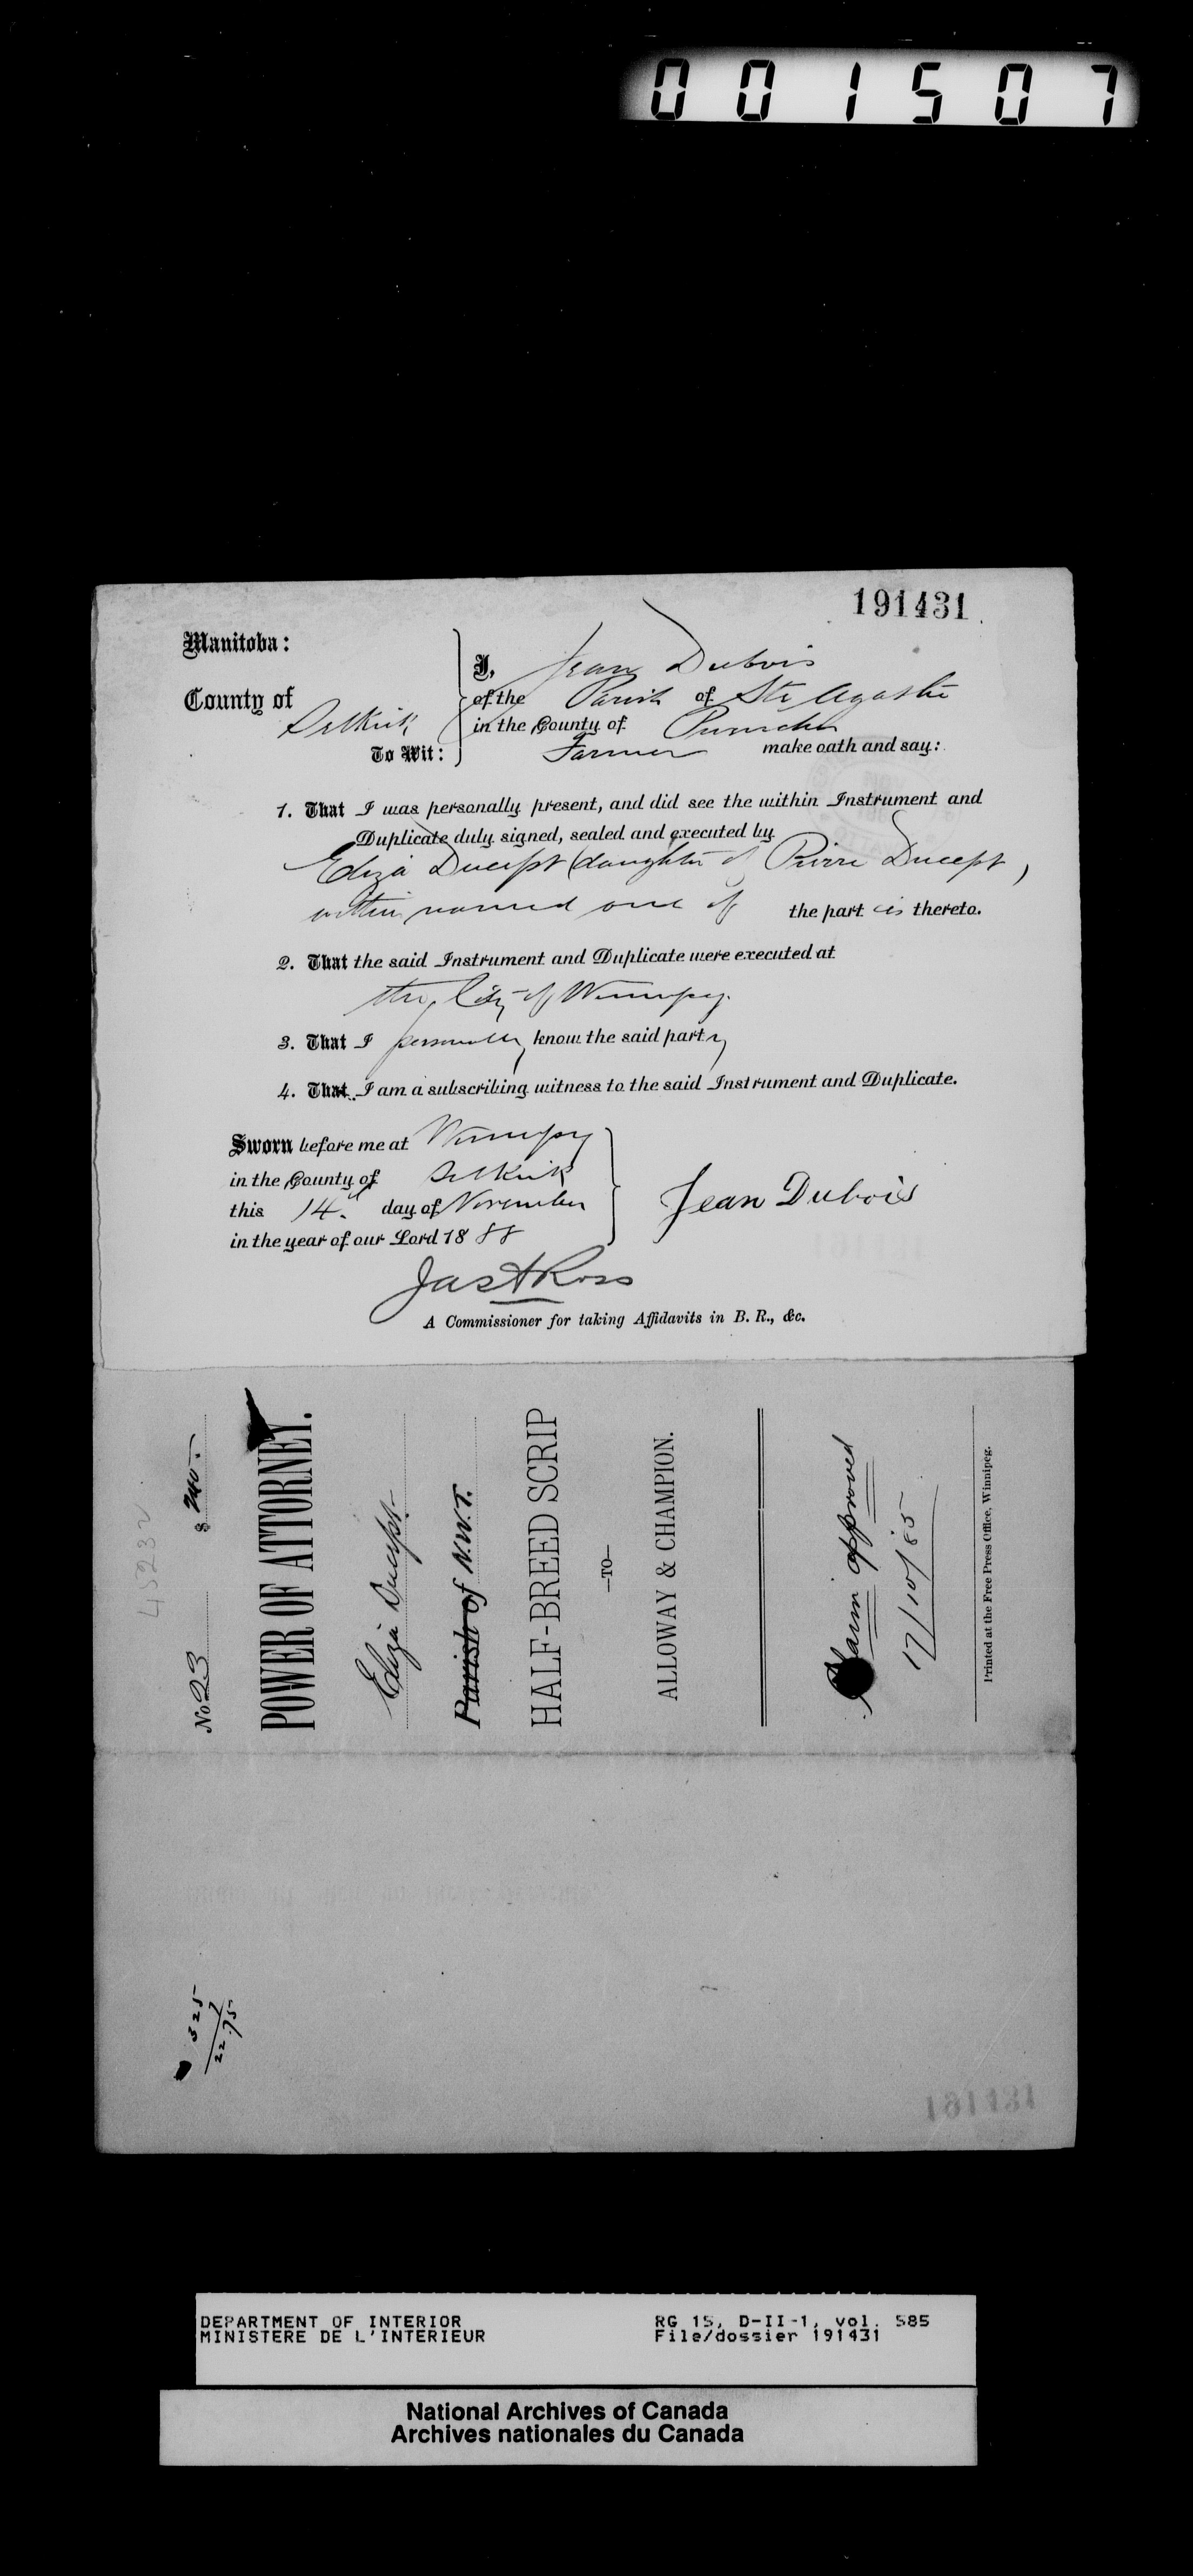 001507
191431
Manitoba:
County of
Selkirk
To Wit:
I, Jean Dubois
of the Parish of Ste Agathe
in the County of Provencher
Farmer make oath and say:
1. That I was personally present, and did see the within Instrument and
Duplicate duly signed, sealed and executed by
Eliza Ducept (daughter of Pierre Ducept)
within named one of the part ies thereto.
2. That the said Instrument and Duplicate were executed at
the City of Winnipeg.
3. That I personally know the said party
4. That I am a subscribing witness to the said Instrument and Duplicate.
Sworn before me at Winnipeg
in the County of Selkirk
this 14th day of November
in the year of our Lord 1888
Jean Dubois
Jas A Ross
A Commissioner for taking Affidavits in B. R., &c.
45232
No 23 $ 240.-
POWER OF ATTORNEY.
Eliza Ducept.
Parish of N.W.T.
HALF-BREED SCRIP
—TO—
ALLOWAY & CHAMPION.
Claim approved
17/10/85
Printed at the Free Press Office, Winnipeg.
325
7
22.75
191431
DEPARTMENT OF INTERIOR
MINISTERE DE L'INTERIEUR
RG 15, D-II-1, vol. 585
File/dossier 191431
National Archives of Canada
Archives nationales du Canada